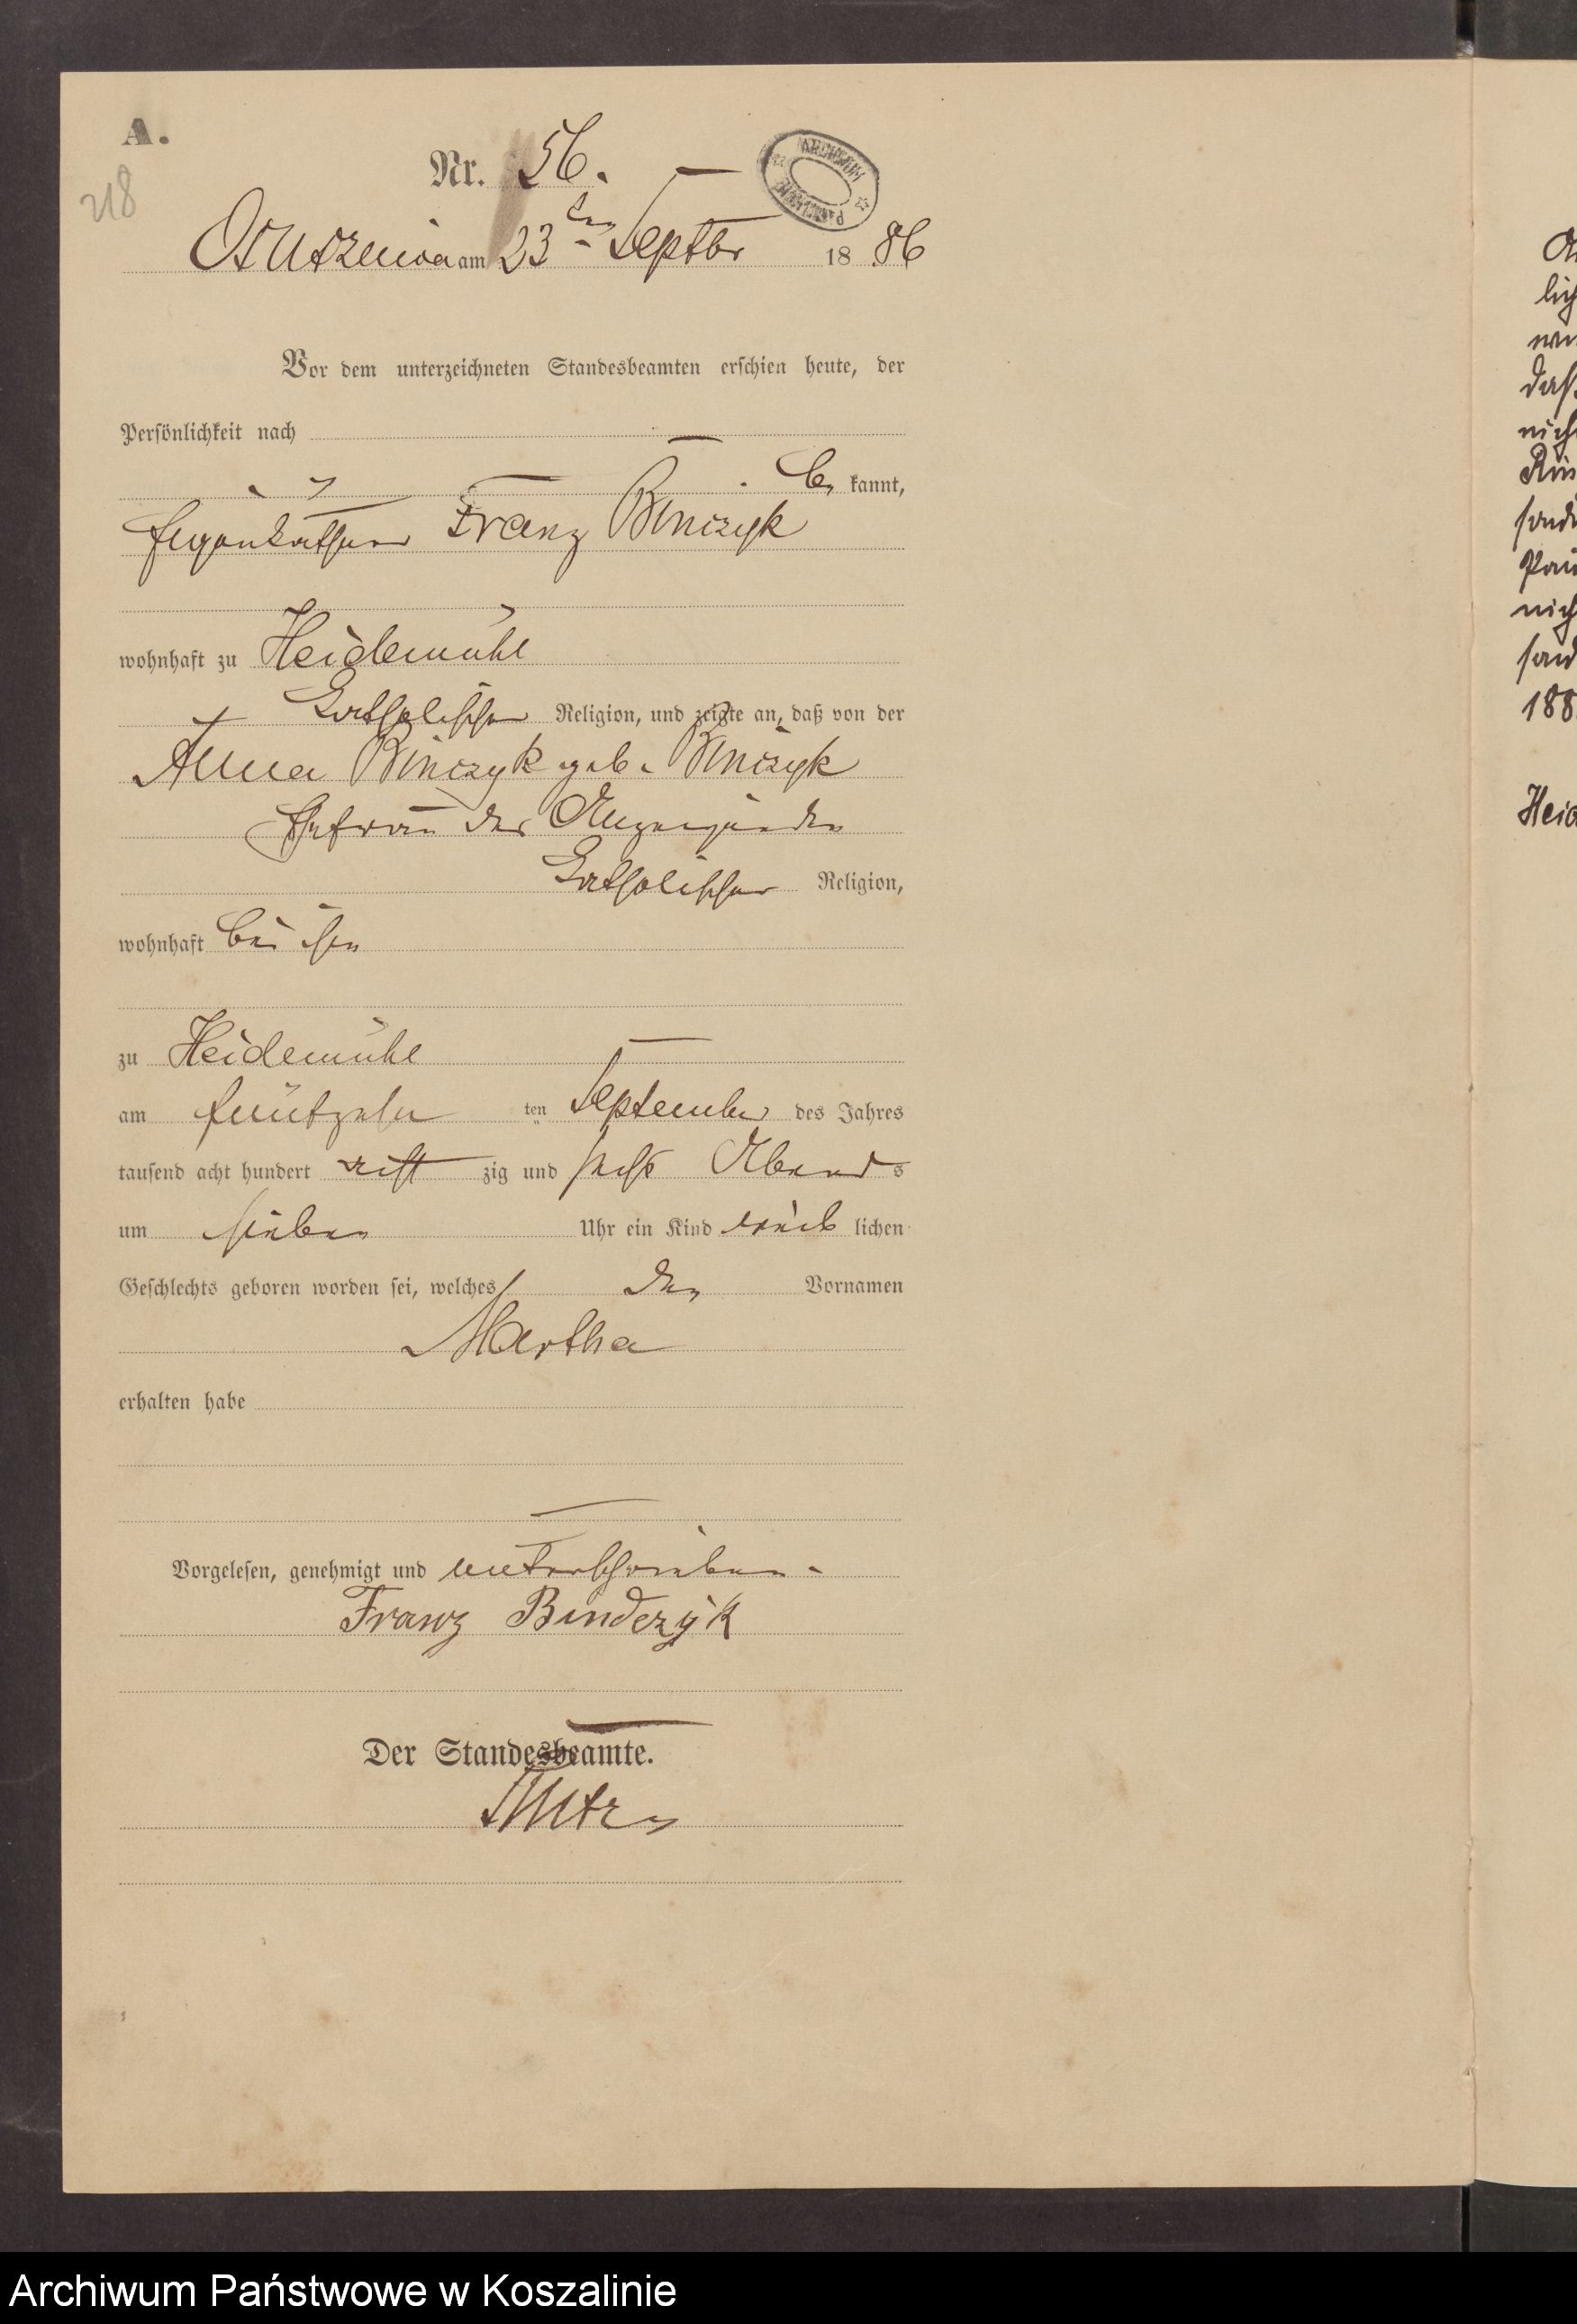 A.
218
Nr. 56.
ARCHIWUM PAŃSTWOWE
Ostuszewa am 23ten Septbr 1886
Vor dem unterzeichneten Standesbeamten erschien heute, der
Persönlichkeit nach
be kannt,
Eigenkäthner Franz Binczyk
wohnhaft zu Heidemühl
katholischer Religion, und zeigte an, daß von der
Anna Binczyk geb. Binczyk
Ehefrau des Anzeigenden
katholischer Religion,
wohnhaft bei ihm
zu Heidemühl
am fünfzehn ten September des Jahres
tausend acht hundert acht zig und sechs Abends
um sieben Uhr ein Kind weib lichen
Geschlechts geboren worden sei, welches den Vornamen
Martha
erhalten habe
Vorgelesen, genehmigt und unterschrieben.
Franz Binderzyk
Der Standesbeamte.
lich
daß
nich
nich
188
Heid
Archiwum Państwowe w Koszalinie